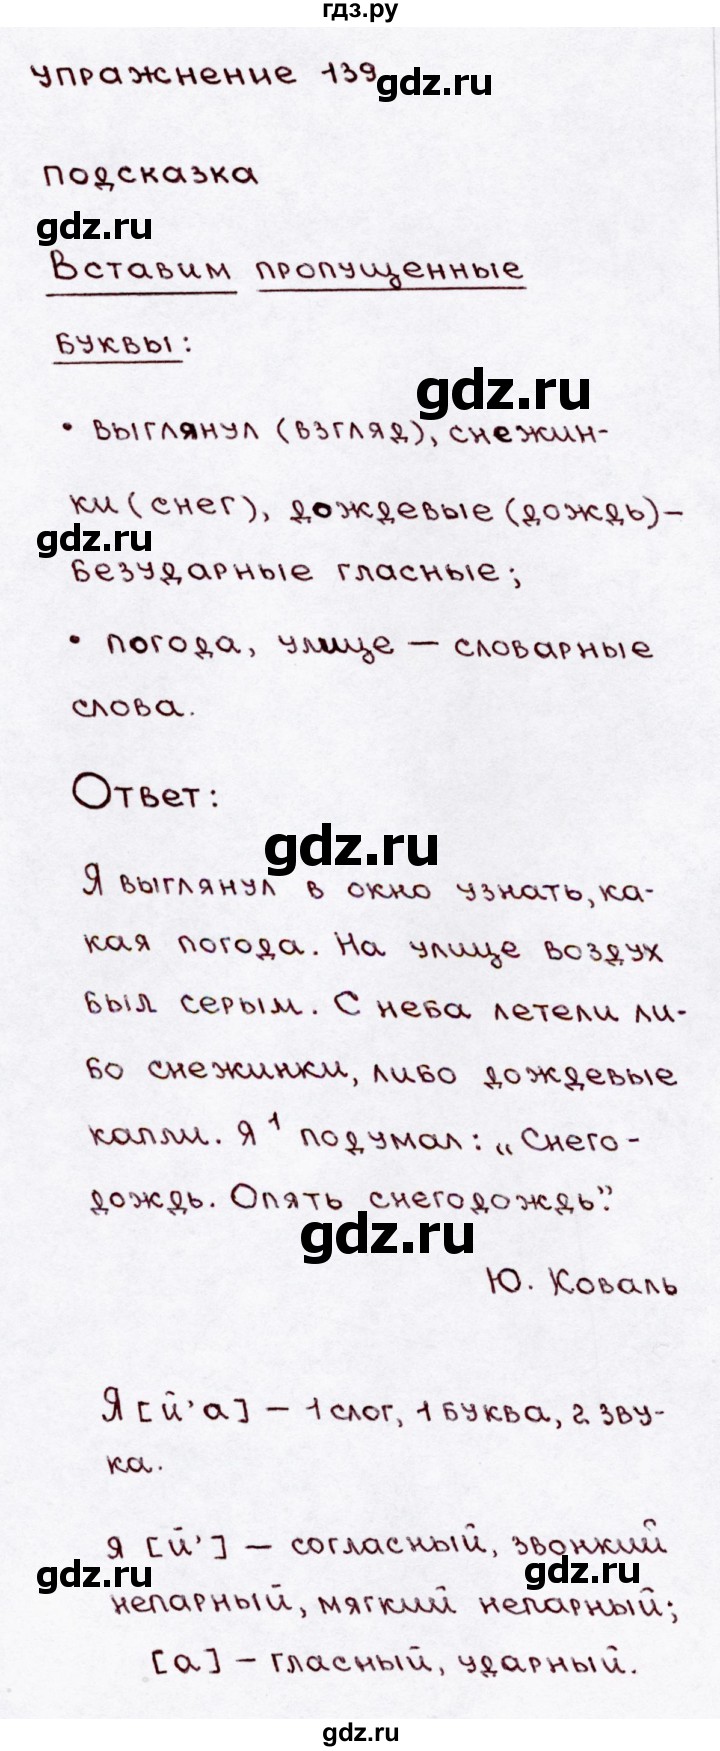 гдз.ру
упражнение 139
gdz.ru
подсказка
gdz.ru
Вставим пропущенные
буквы:
gdz.ru
• выглянул (взгляд), снежин-
ки (снег), дождевые (дождь) –
gdz.ru
безударные гласные;
• погода, улице – словарные
слова.
Ответ:
gdz.ru
Я выглянул в окно узнать, ка-
кая погода. На улице воздух
был серым. С неба летели ли-
бо снежинки, либо дождевые
капли. Я ¹ подумал: „Снего-
дождь. Опять снегодождь".
gdz.ru
Ю. Коваль
Я [й'а] – 1 слог, 1 буква, 2 зву-
ка.
я [й'] – согласный, звонкий
gdz.ru
gdz.ru
непарный, мягкий непарный;
[а] – гласный, ударный.
gdz.ru